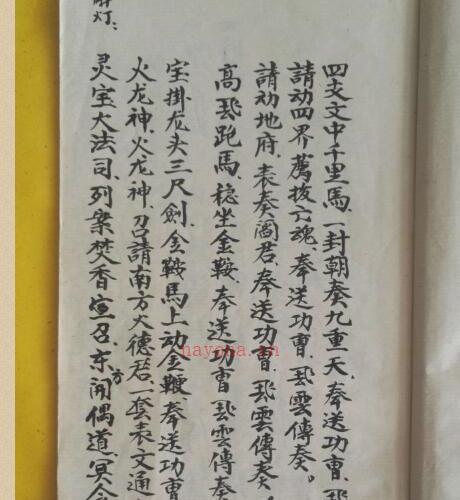 四支文中千里馬、一封朝奏九重天、奉送功曹、飛
請动四界薦拔亡魂、奉送功曹、飛雲傳奏。
請动地府、表奏阎君、奉送功曹、飛雲傳奏。
高飛跑馬、稳坐金鞍、奉送功曹飛雲傳奏
宝掛龙头三尺劍、金鞍馬上动金鞭奉送功曹
火龙神、火龙神、召請南方火德君一套表文通
灵宝大法司、列案焚香宣召、东方開偶道、冥
灯：
nayona.cn